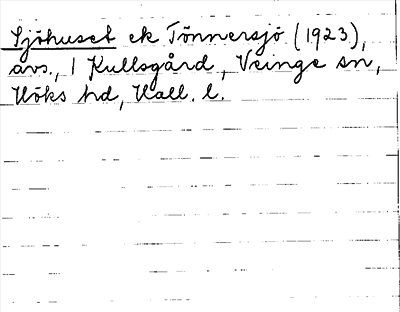 Sjöhuset ek Tönnersjö (1923),
avs., 1 Kullsgård, Veinge sn,
Höks hd, Hall. l.